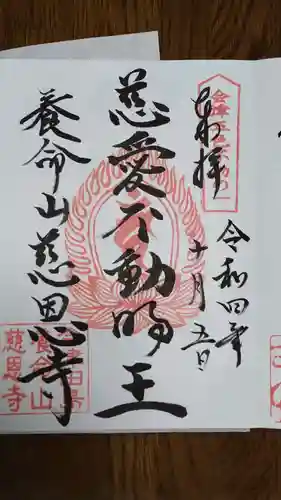 奉拝
令和四年
十月五日
慈愛不動明王
養命山慈恩寺
養命山
慈恩寺